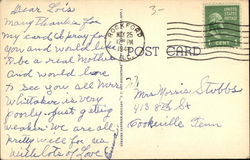 Dear Lois
Many thanks for
my card & pray for
you and would love
to be a real Mother
and would love
to see you all Mrs
Whittaker is very
poorly just getting
weaker We are all
pretty well for us
with lots of Love
3-
ROCKFORD
MAY 25
POST CARD
1 CENT 1
Mrs Morris Stubbs
413 8th St
Cookeville Tenn